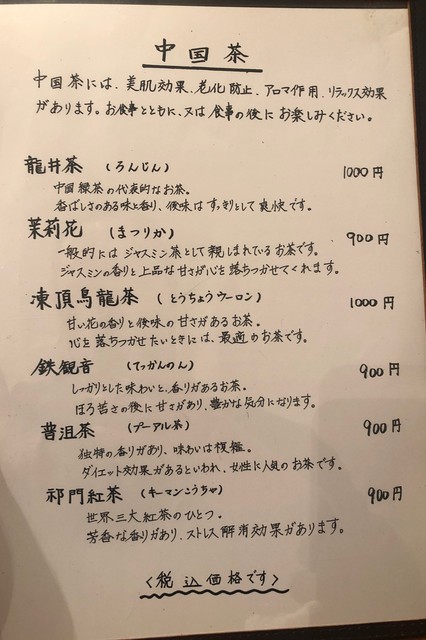 中国茶
中国茶には、美肌効果、老化防止、アロマ作用、リラックス効果
があります。お食事とともに、又は食事の後にお楽しみください。
龍井茶（ろんじん） 1000円
中国緑茶の代表的なお茶。
香ばしさのある味と香り、後味はすっきりとして爽快です。
茉莉花（まつりか） 900円
一般的にはジャスミン茶として親しまれているお茶です。
ジャスミンの香りと上品な甘さが心を落ちつかせてくれます。
凍頂烏龍茶（とうちょうウーロン） 1000円
甘い花の香りと後味の甘さがあるお茶。
心を落ちつかせたいときには、最適のお茶です。
鉄観音（てっかんのん） 900円
しっかりとした味わいと、香りがあるお茶。
ほろ苦さの後に甘さがあり、豊かな気分になります。
普洱茶（プーアル茶） 900円
独特の香りがあり、味わいは複雑。
ダイエット効果があるといわれ、女性に人気のお茶です。
祁門紅茶（キーマンこうちゃ） 900円
世界三大紅茶のひとつ。
芳香な香りがあり、ストレス解消効果があります。
〈税込価格です〉